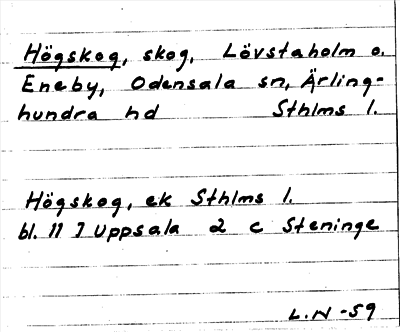 Högskog, skog, Lövstaholm o.
Eneby, Odensala sn, Ärling-
hundra hd Sthlms l.
Högskog, ek Sthlms l.
bl. 11 I Uppsala 2 c Steninge
L.N -59